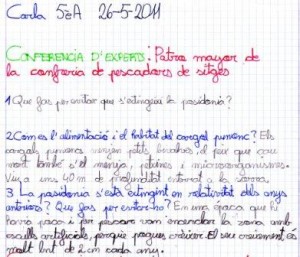 Carla 5èA 26-5-2011
CONFERENCIA D'EXPERTS: Patro mayor de
la confraria de pescadors de sitges
1 Que fas per evitar que s'estingeixi la posidonia?
2 Com es l'alimentació i el habitat del cargol pumenc? Els
cargols pumencs mengen petits
mort també s'el menja, i microorganismes.
Viu a uns 40 m de profunditat enterrat a la sorra.
3 La posidonia s'està extingint en relativitat dels anys
anteriors? Que fas per evitar-ho? En una época que hi
havia poca i per poguer van encendar la zona amb
esculls artificials, perque pogues créixer. El seu creixement és
molt lent de 2 cm cada any.